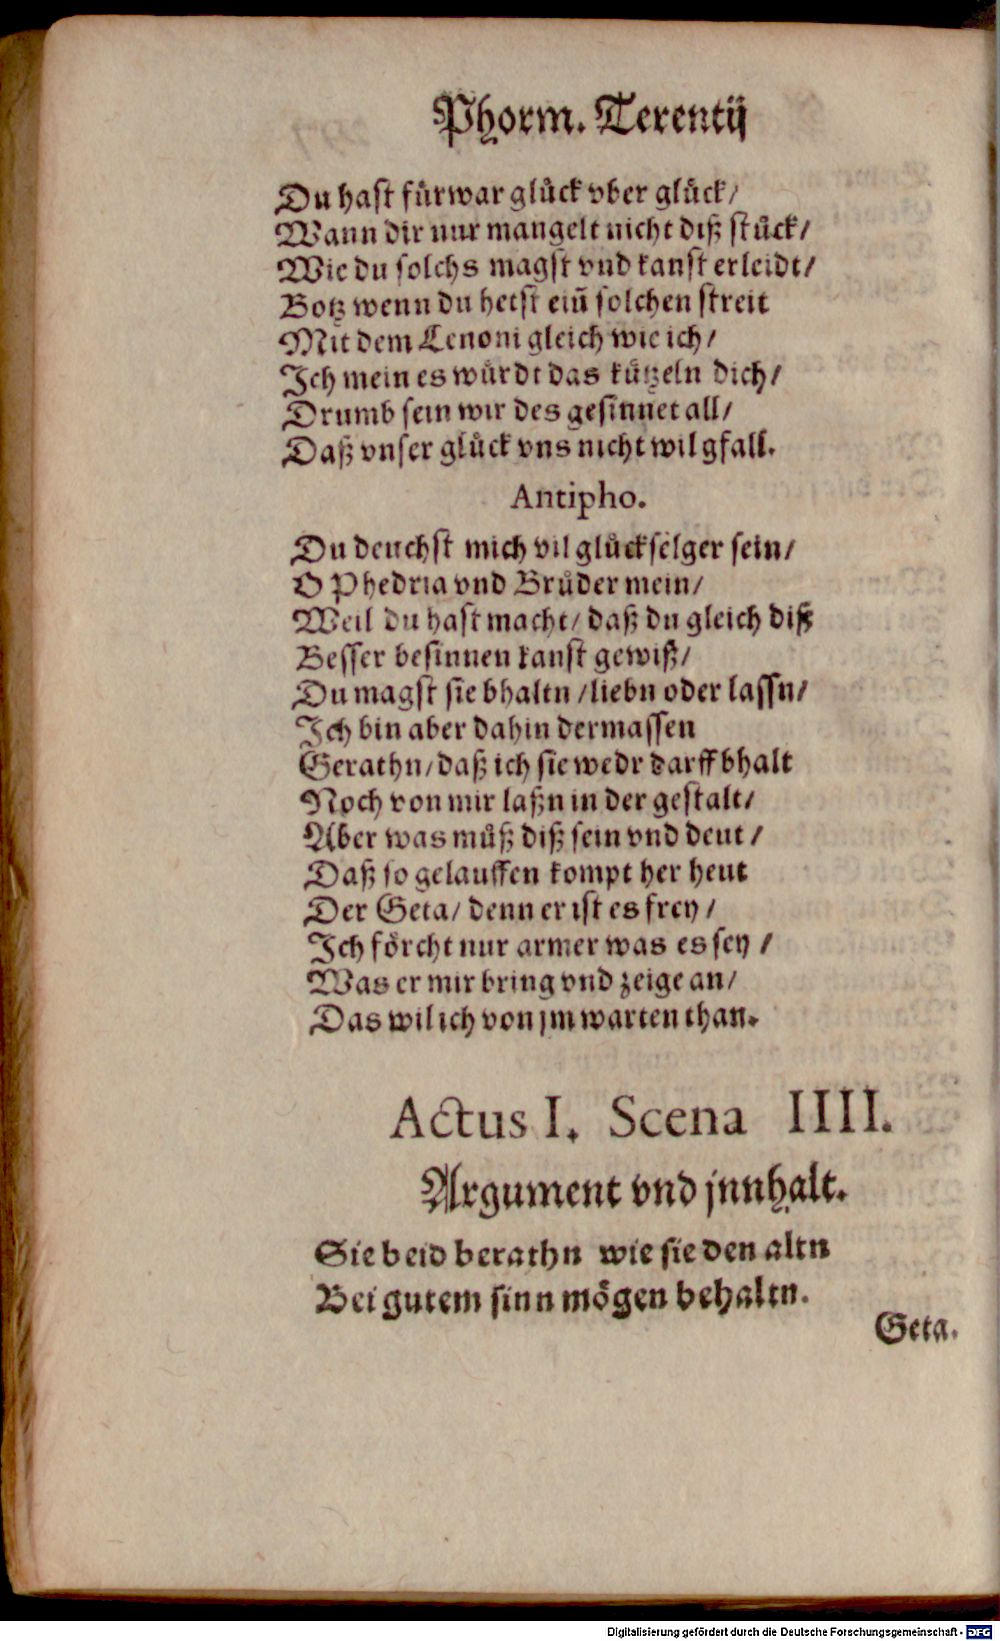 Phorm. Terentij
Du hast fürwar glück vber glück/
Wann dir nur mangelt nicht diß stück/
Wie du solchs magst vnd kanst erleidt/
Botz wenn du hetst eiñ solchen streit
Mit dem Lenoni gleich wie ich/
Ich mein es würdt das kützeln dich/
Drumb sein wir des gesinnet all/
Daß vnser glück vns nicht wil gfall.
Antipho.
Du deuchst mich vil glückselger sein/
O Phedria vnd Brüder mein/
Weil du hast macht/ daß du gleich diß
Besser besinnen kanst gewiß/
Du magst sie bhaltn/liebn oder lassn/
Ich bin aber dahin dermassen
Gerathn/daß ich sie wedr darff bhalt
Noch von mir laßn in der gestalt/
Aber was můß diß sein vnd deut/
Daß so gelauffen kompt her heut
Der Geta/ denn er ist es frey/
Ich förcht nur armer was es sey/
Was er mir bring vnd zeige an/
Das wil ich von jm warten than.
Actus I. Scena IIII.
Argument vnd jnnhalt.
Sie beid berathn wie sie den altn
Bei gutem sinn mögen behaltn.
Geta.
Digitalisierung gefördert durch die Deutsche Forschungsgemeinschaft - DFG